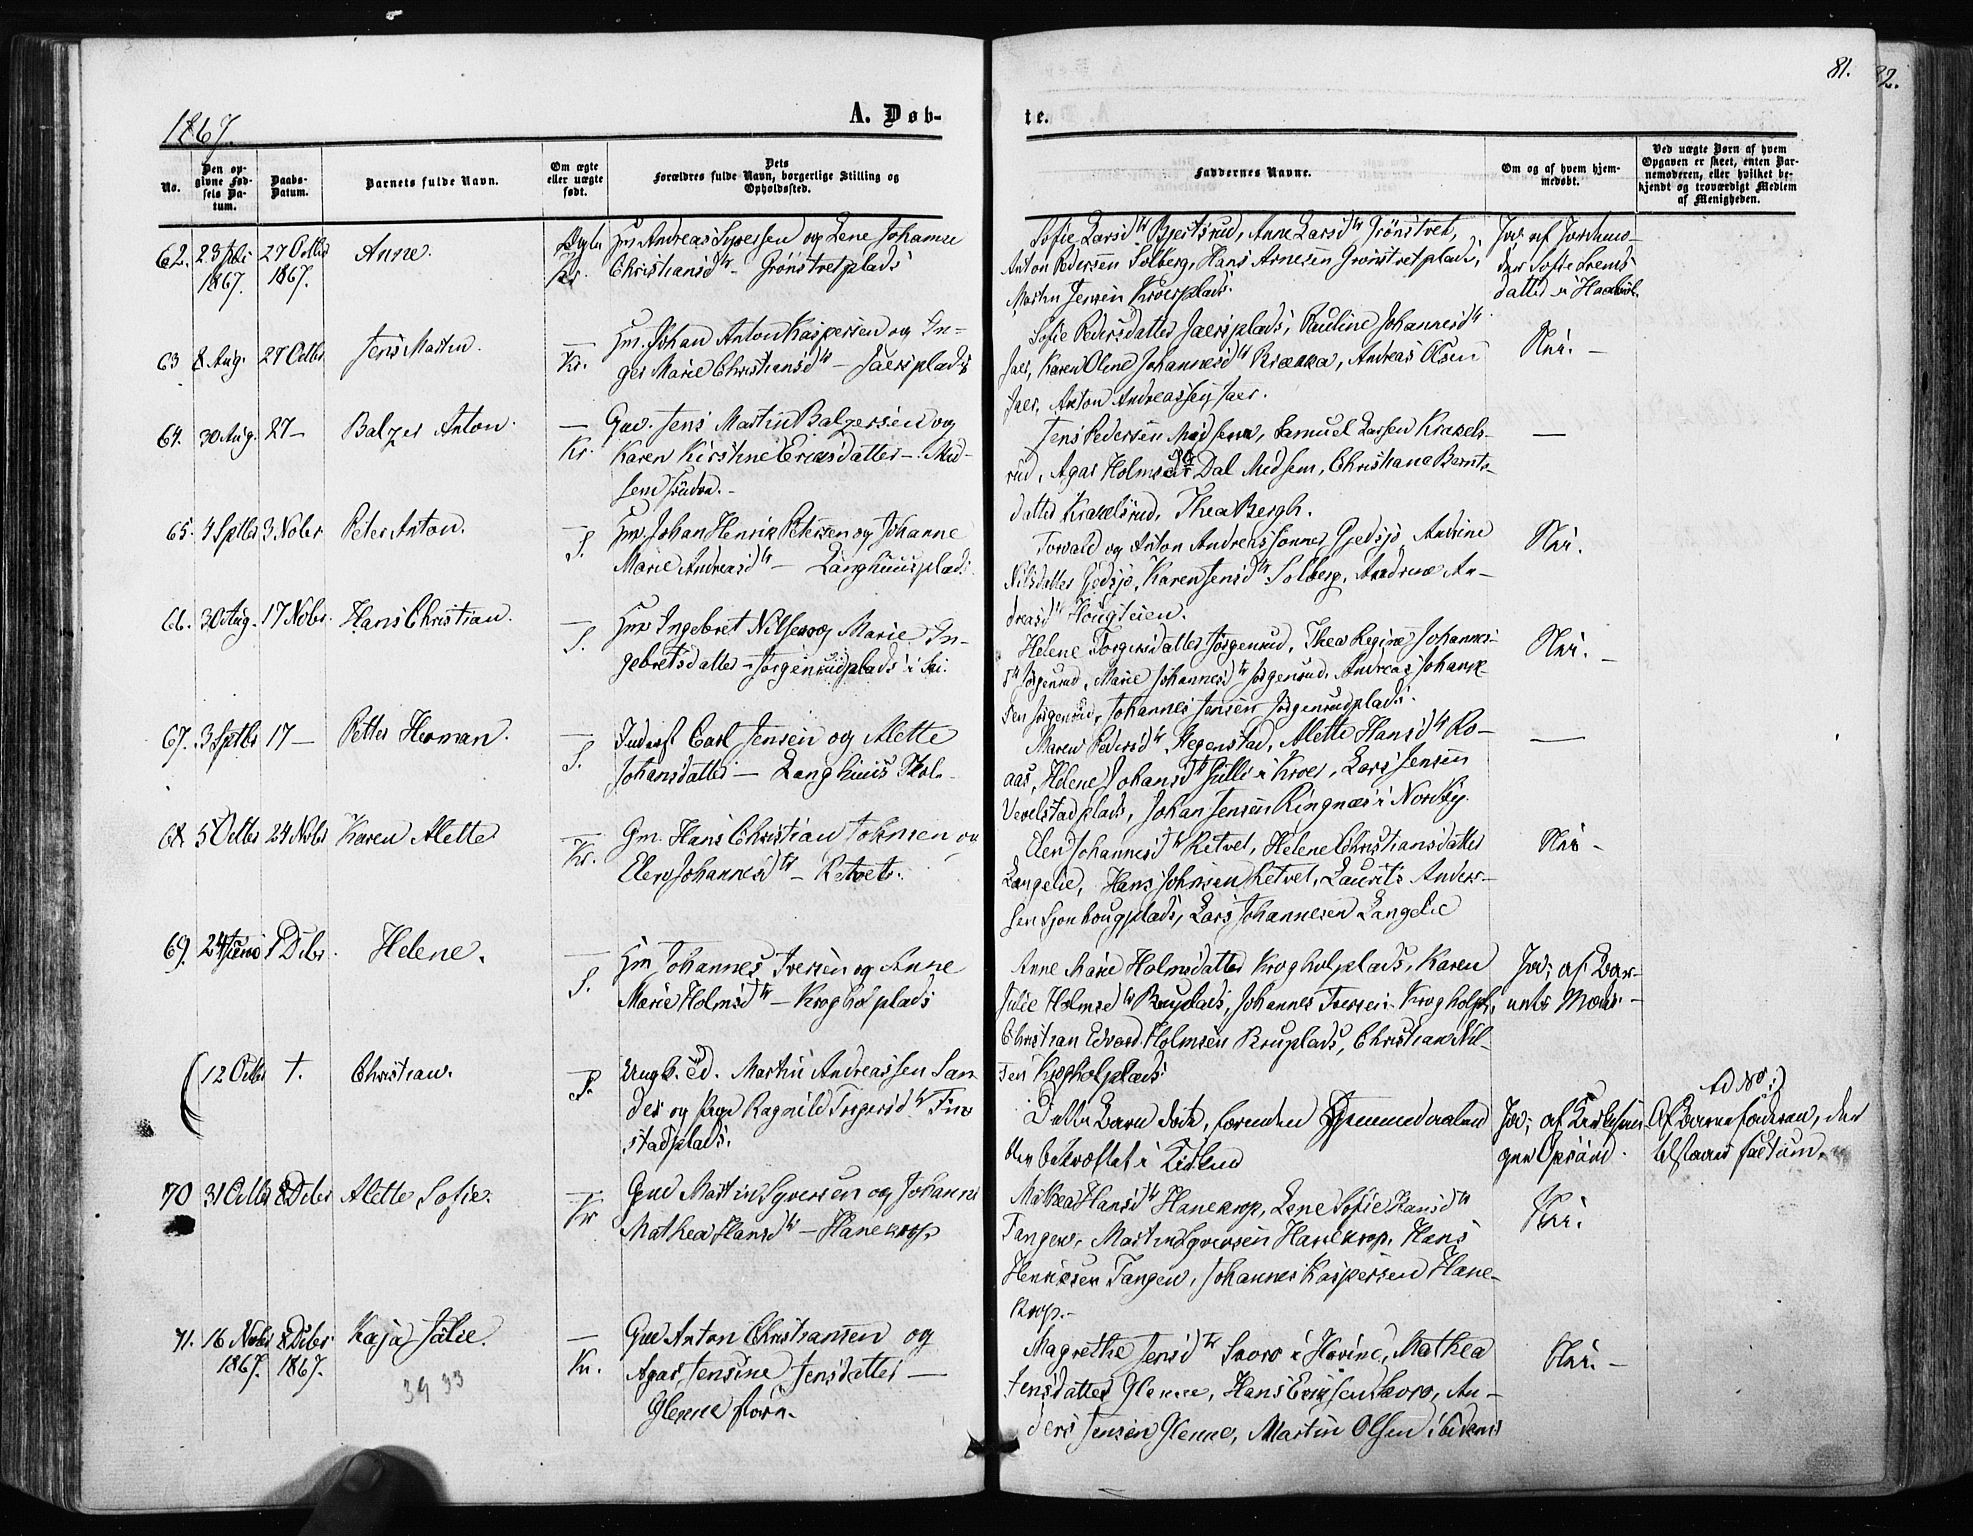 81.
82.
1867.
A. Døb-
te.
No.
Den op-
givne Fød-
sels Da-
tum.
Daabs-
Datum.
Barnets fulde Navn.
Om ægte
eller uægte
født.
Dets
Forældres fulde Navn, borgerlige Stilling og
Opholdssted.
Faddernes Navne.
Om og af hvem hjem-
medøbt.
Ved uægte Børn af hvem
Opgaven er skeet, enten Bar-
nemoderen, eller hvilket be-
kjendt og troværdigt Medlem
af Menigheden.
62.
1867.
27 Octbr
1867.
Anne.
Kr.
Hm Andreas Syversen og Lene Johanne
Christiansdtr – Grönsletplads
Sofie Larsdtr Bjertsrud, Anne Larsdtr
Anton Pedersen Solberg, Hans Arnesen
Martin Jensen Kroerplads.
Ja, af Jordemo-
der Sofie
datter
63
8 Aug.
27 Octbr
Jens Martin.
—
Kr.
Hm. Johan Anton Kaspersen og In-
ger Marie Christiansdtr – Jaersplads
Sofie Pedersdatter Jaersplads, Pauline Johannesdtr
Jaer, Karen Oline Johannesdtr Brække, Andreas Olsen
Jaer, Anton Andreassen Jaer.
Nei. –
64.
30 Aug.
27 –
Balzer Anton.
—
Kr.
Gm. Jens Martin Balzersen og
Karen Kirstine Ericsdatter – Mid-
sem söndre. –
Jens Pedersen Midsem, Samuel Larsen Krakels-
rud, Agar Holmsdtr Dal Midsem, Christiane Bernts-
datter Krakelsrud, Thea Bergh.
—
65.
4 Sptbr
3 Nobr
Peter Anton.
—
S.
Hm Johan Henrik Petersen og Johanne
Marie Andreasdtr – Langhuusplads
Torvald og Anton Andreassønner Gjedsjø, Andrine
Nilsdatter Gjedsjø, Karen Jensdtr Solberg, Andrine An-
dreasdtr Hougteien.
Nei.
66.
30 Aug.
17 Nobr.
Hans Christian.
—
S.
Hm Ingebret Nilsen og Marie In-
gebretsdatter – Jörgensrudplads i Ski.
Helene Torgersdatter Jörgenrud, Thea Regine Johannes-
dtr Jörgenrud, Marie Johannesdtr Jörgenrud, Andreas Johan-
sen Jörgenrud, Johannes Jensen Jörgenrudplads.
Nei. –
67.
3 Sptbr
17 –
Petter Herman.
—
S.
Inderst Carl Jensen og Alette
Johansdatter – Langhuus
Maren Pedersdtr Hegenstad, Alette Hansdtr Ro-
aas, Helene Johansdtr i Kroer, Lars Jensen
Vevelstadplads, Johan Jensen Ringnæs i Nordby.
—
68
5 Octbr
24 Nobr
Karen Alette
—
Kr.
Gm. Hans Christian Johnsen og
Elen Johannesdtr – Retvet.
Elen Johannesdtr Retvet, Helene Christiansdatter
Langelie, Hans Johnsen Retvet, Laurits Anders-
sen Lars Johannesen Langelie
Nei –
69.
1 Dcbr.
Helene.
—
S.
Hm Johannes Iversen og Anne
Marie Holmsdtr – Krogholplads
Anne Marie Holmsdatter Krogholplads, Karen
Julie Holmsdtr Bruplads, Johannes Iversen Krogholpl.,
Christian Edvard Holmsen Bruplads, Christian Nil-
sen Krogholplads
Ja; af Bar-
nets Moder. –
12 Octbr
Christian.
—
S.
Ungk. Martin Andreassen San-
der og Pige Ragnild Torgersdtr Fin-
stadplads.
Dette Barn døde, forinden Hjemmedaaben
blev bekræftet i Kirken
Ja; af Kirkesan-
ger Opsand.
Ad No:
Af Barnefaderen, der
tilstaaer factum.
70
31 Octbr
8 Dcbr
Alette Sofie.
—
Kr
Gm Martin Syversen og Johanne
Mathea Hansdtr – Hanekrop
Mathea Hansdtr Hanekrop, Lene Sofie Hansdtr
Tangen, Martin Syversen Hanekrop, Hans
Henriksen Tangen, Johannes Kaspersen Hane-
krop. –
Nei.
71.
16 Nobr
1867.
8 Dcbr
1867.
Kaja Julie.
39 33
—
Kr.
Gm Anton Christiansen og
Agar Jensine Jensdatter –
Glenne store.
Magrethe Jensdtr Skoro i Havine, Mathea
Jensdatter Glenne, Hans Eriksen Skoro, An-
ders Jensen Glenne, Martin Olsen ibidem
Nei. –